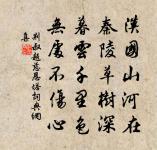 漢國山河在
秦陵草樹深
暮雲千里色
無處不傷心
荆叔題慈恩塔詞典網
喜